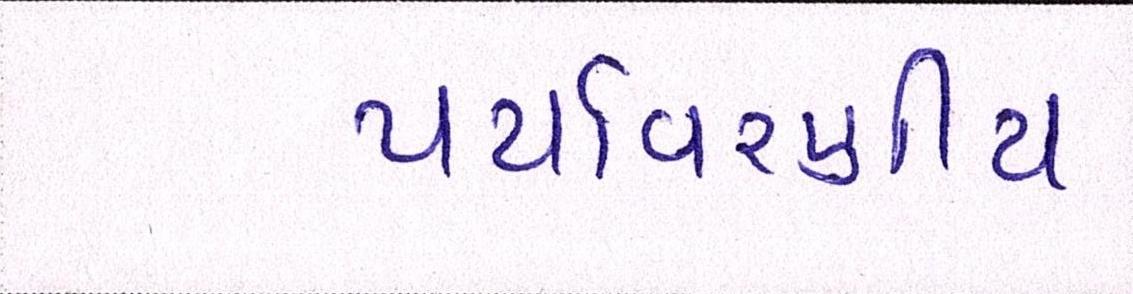 પર્યાવરણીય